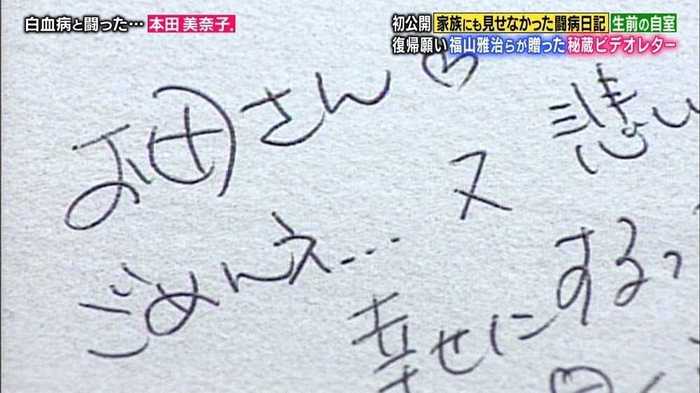 白血病と闘った… 本田 美奈子.
初公開 家族にも見せなかった闘病日記 生前の自室
復帰願い 福山雅治らが贈った 秘蔵ビデオレター
お母さん♡
ごめんネ… 又 悲し
幸せにするっ